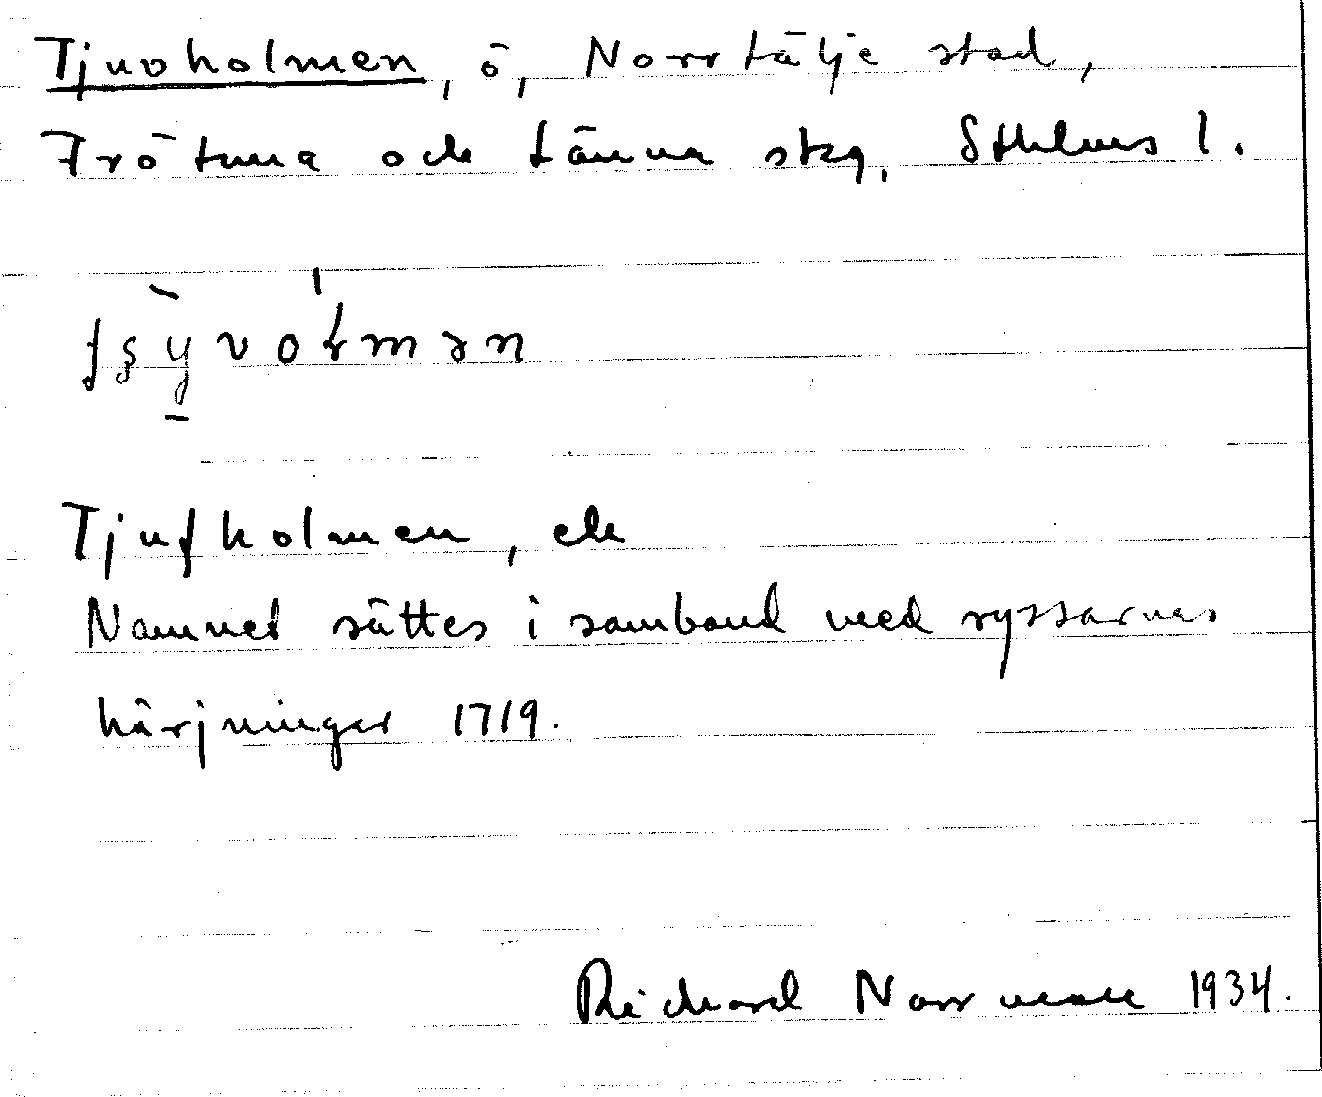 Tjuvholmen, ö, Norrtälje stad,
Frötuna och Länna skg, Sthlms l.
Tjufholmen, ek
Namnet sättes i samband med ryssarnes
härjningar 1719.
Richard Norrman 1934.